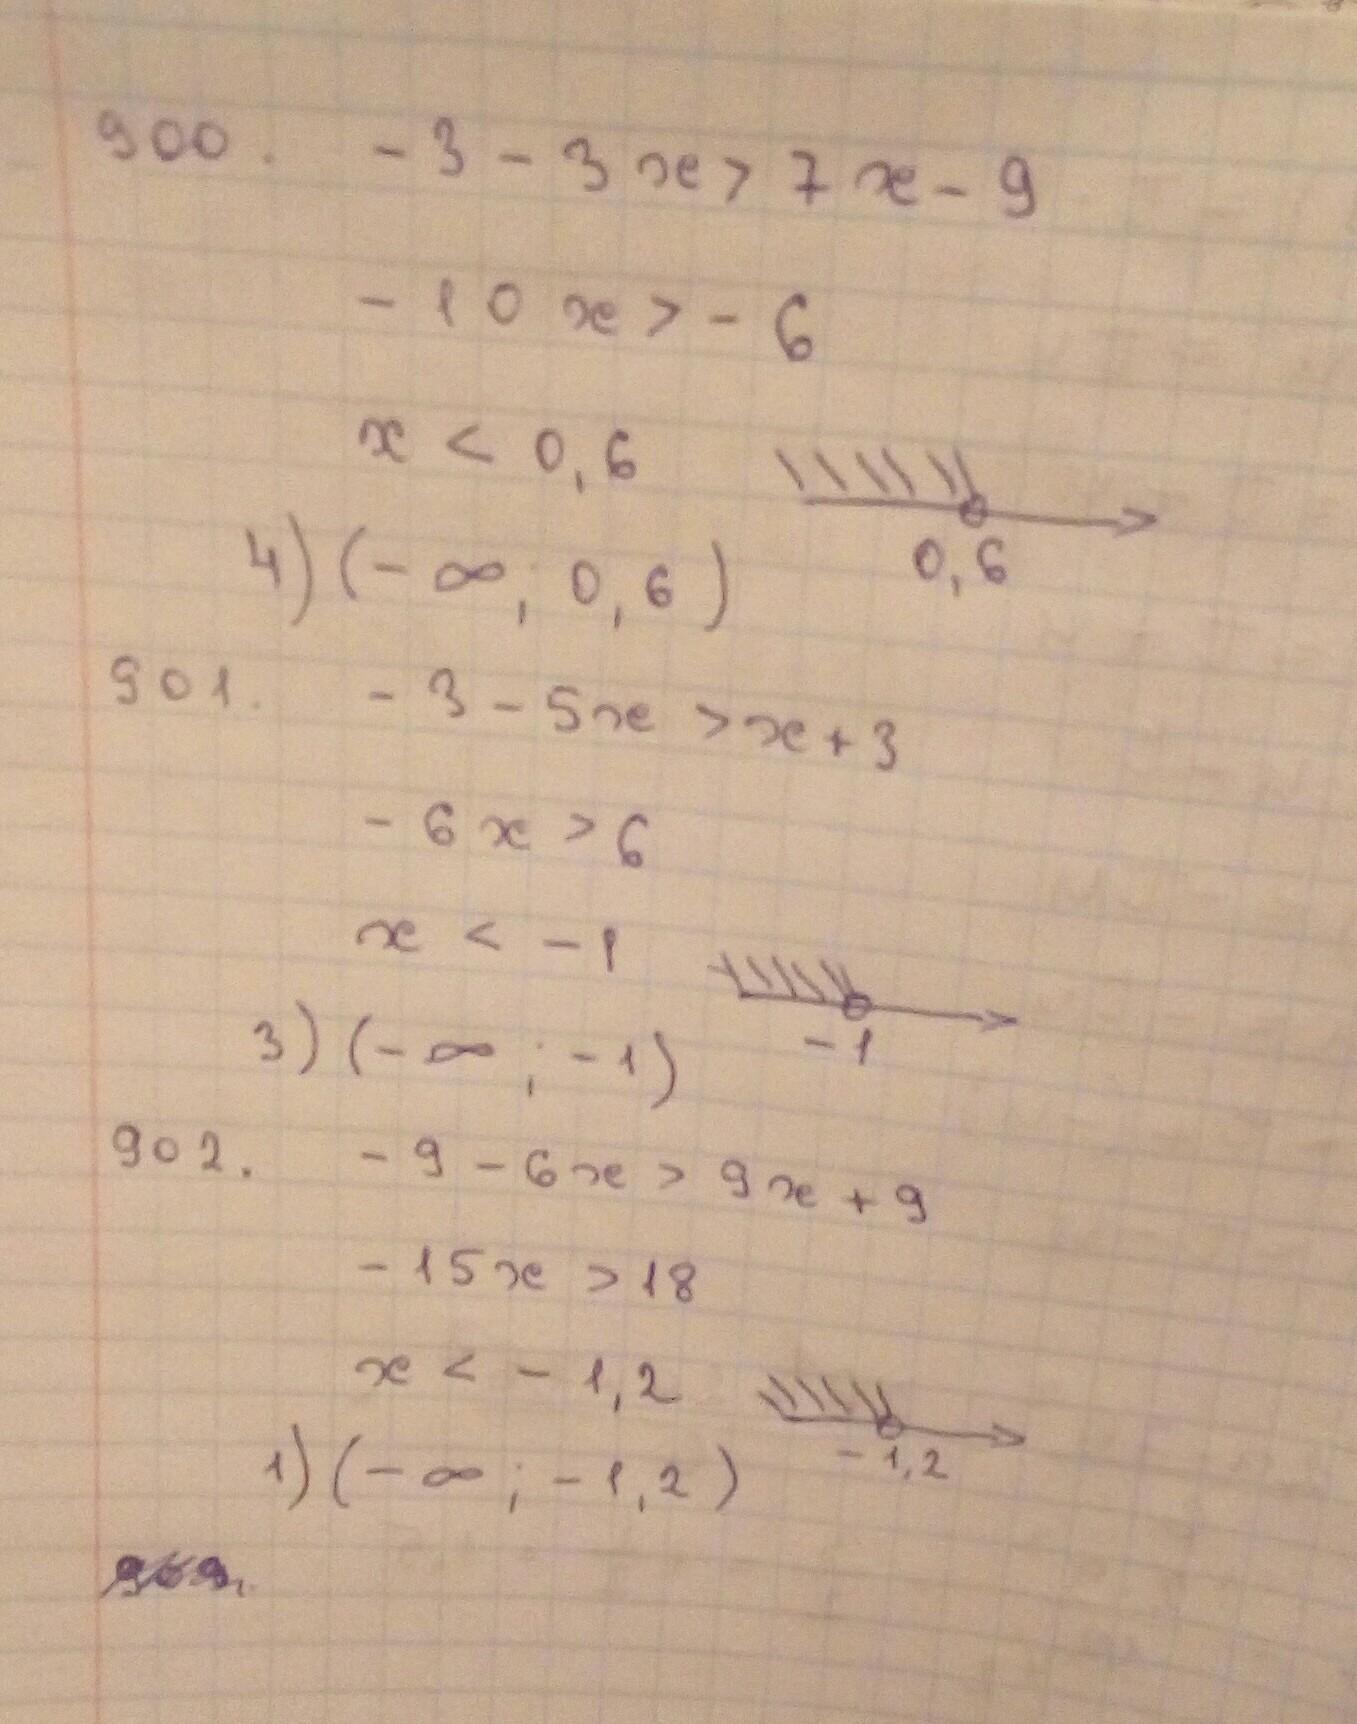 900. -3 - 3x > 7x - 9
-10x > -6
x < 0,6
0,6
4) (-∞; 0,6)
901. -3 - 5x > x + 3
-6x > 6
x < -1
-1
3) (-∞; -1)
902. -9 - 6x > 9x + 9
-15x > 18
x < -1,2
-1,2
1) (-∞; -1,2)